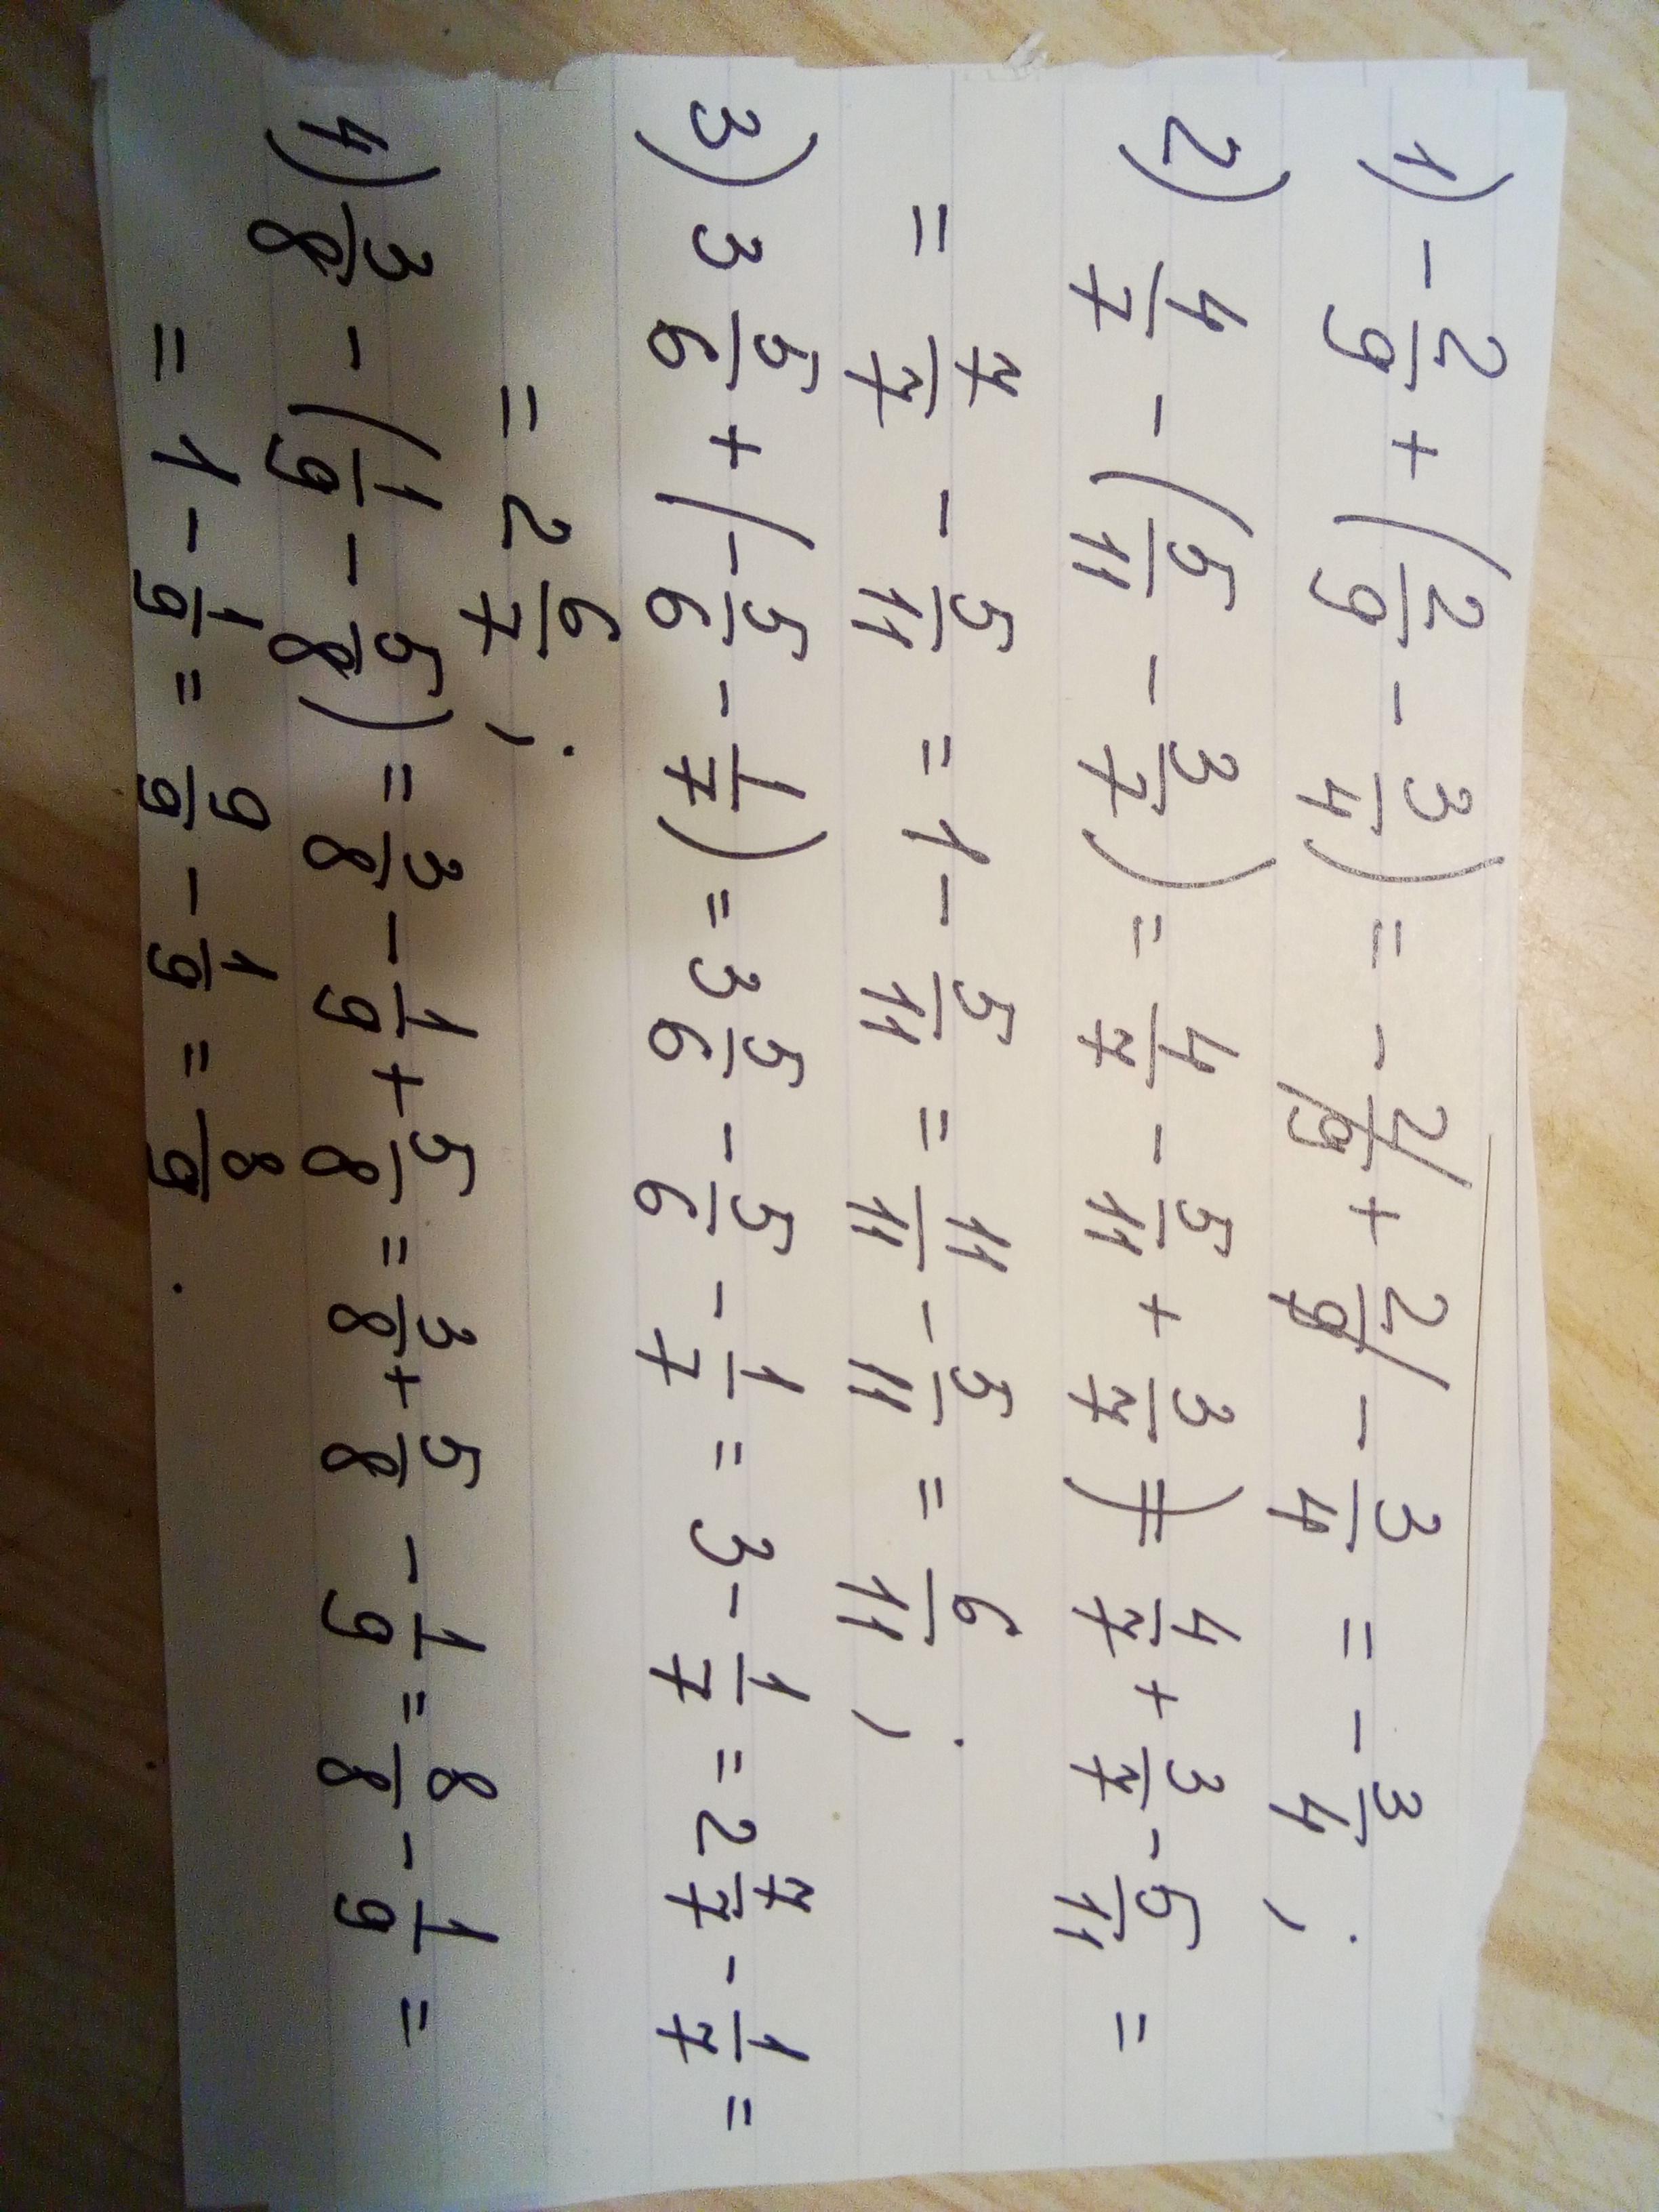 1) - 2/9 + (2/9 - 3/4) = - 2/9 + 2/9 - 3/4 = - 3/4 ;
2) 4/7 - (5/11 - 3/7) = 4/7 - 5/11 + 3/7 ) = 4/7 + 3/7 - 5/11 =
= 7/7 - 5/11 = 1 - 5/11 = 11/11 - 5/11 = 6/11 ;
3) 3 5/6 + (- 5/6 - 1/7) = 3 5/6 - 5/6 - 1/7 = 3 - 1/7 = 2 7/7 - 1/7 =
= 2 6/7 ;
4) 3/8 - (1/9 - 5/8) = 3/8 - 1/9 + 5/8 = 3/8 + 5/8 - 1/9 = 8/8 - 1/9 =
= 1 - 1/9 = 9/9 - 1/9 = 8/9 .